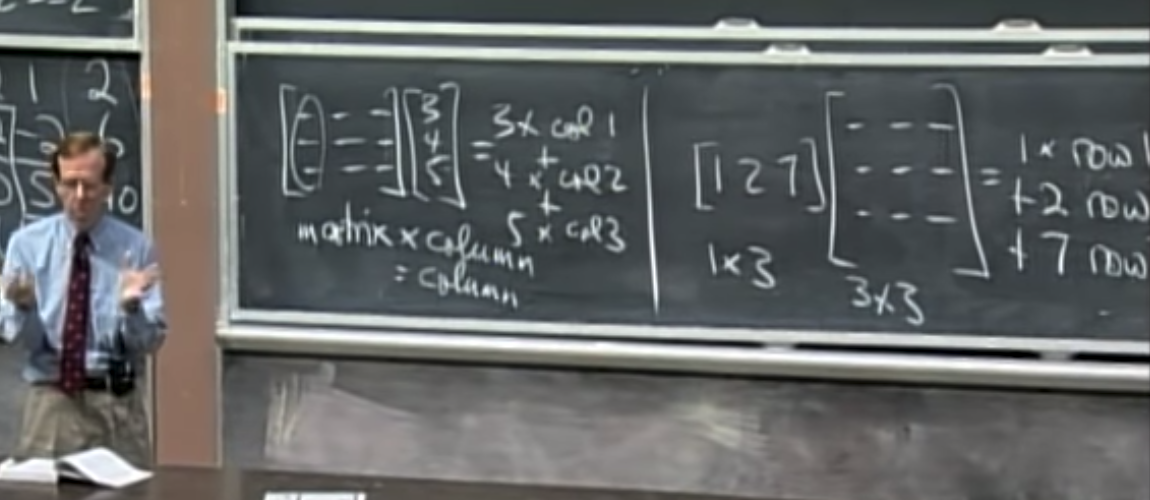 1 2
-2 6
5 10
[- - -] [3 4 5] = 3 x col 1
+
4 x col 2
+
5 x col3
matrix x column
= column
[1 2 7] [- - -] = 1 x row 1
+ 2 row
+ 7 row
1 x 3
3 x 3